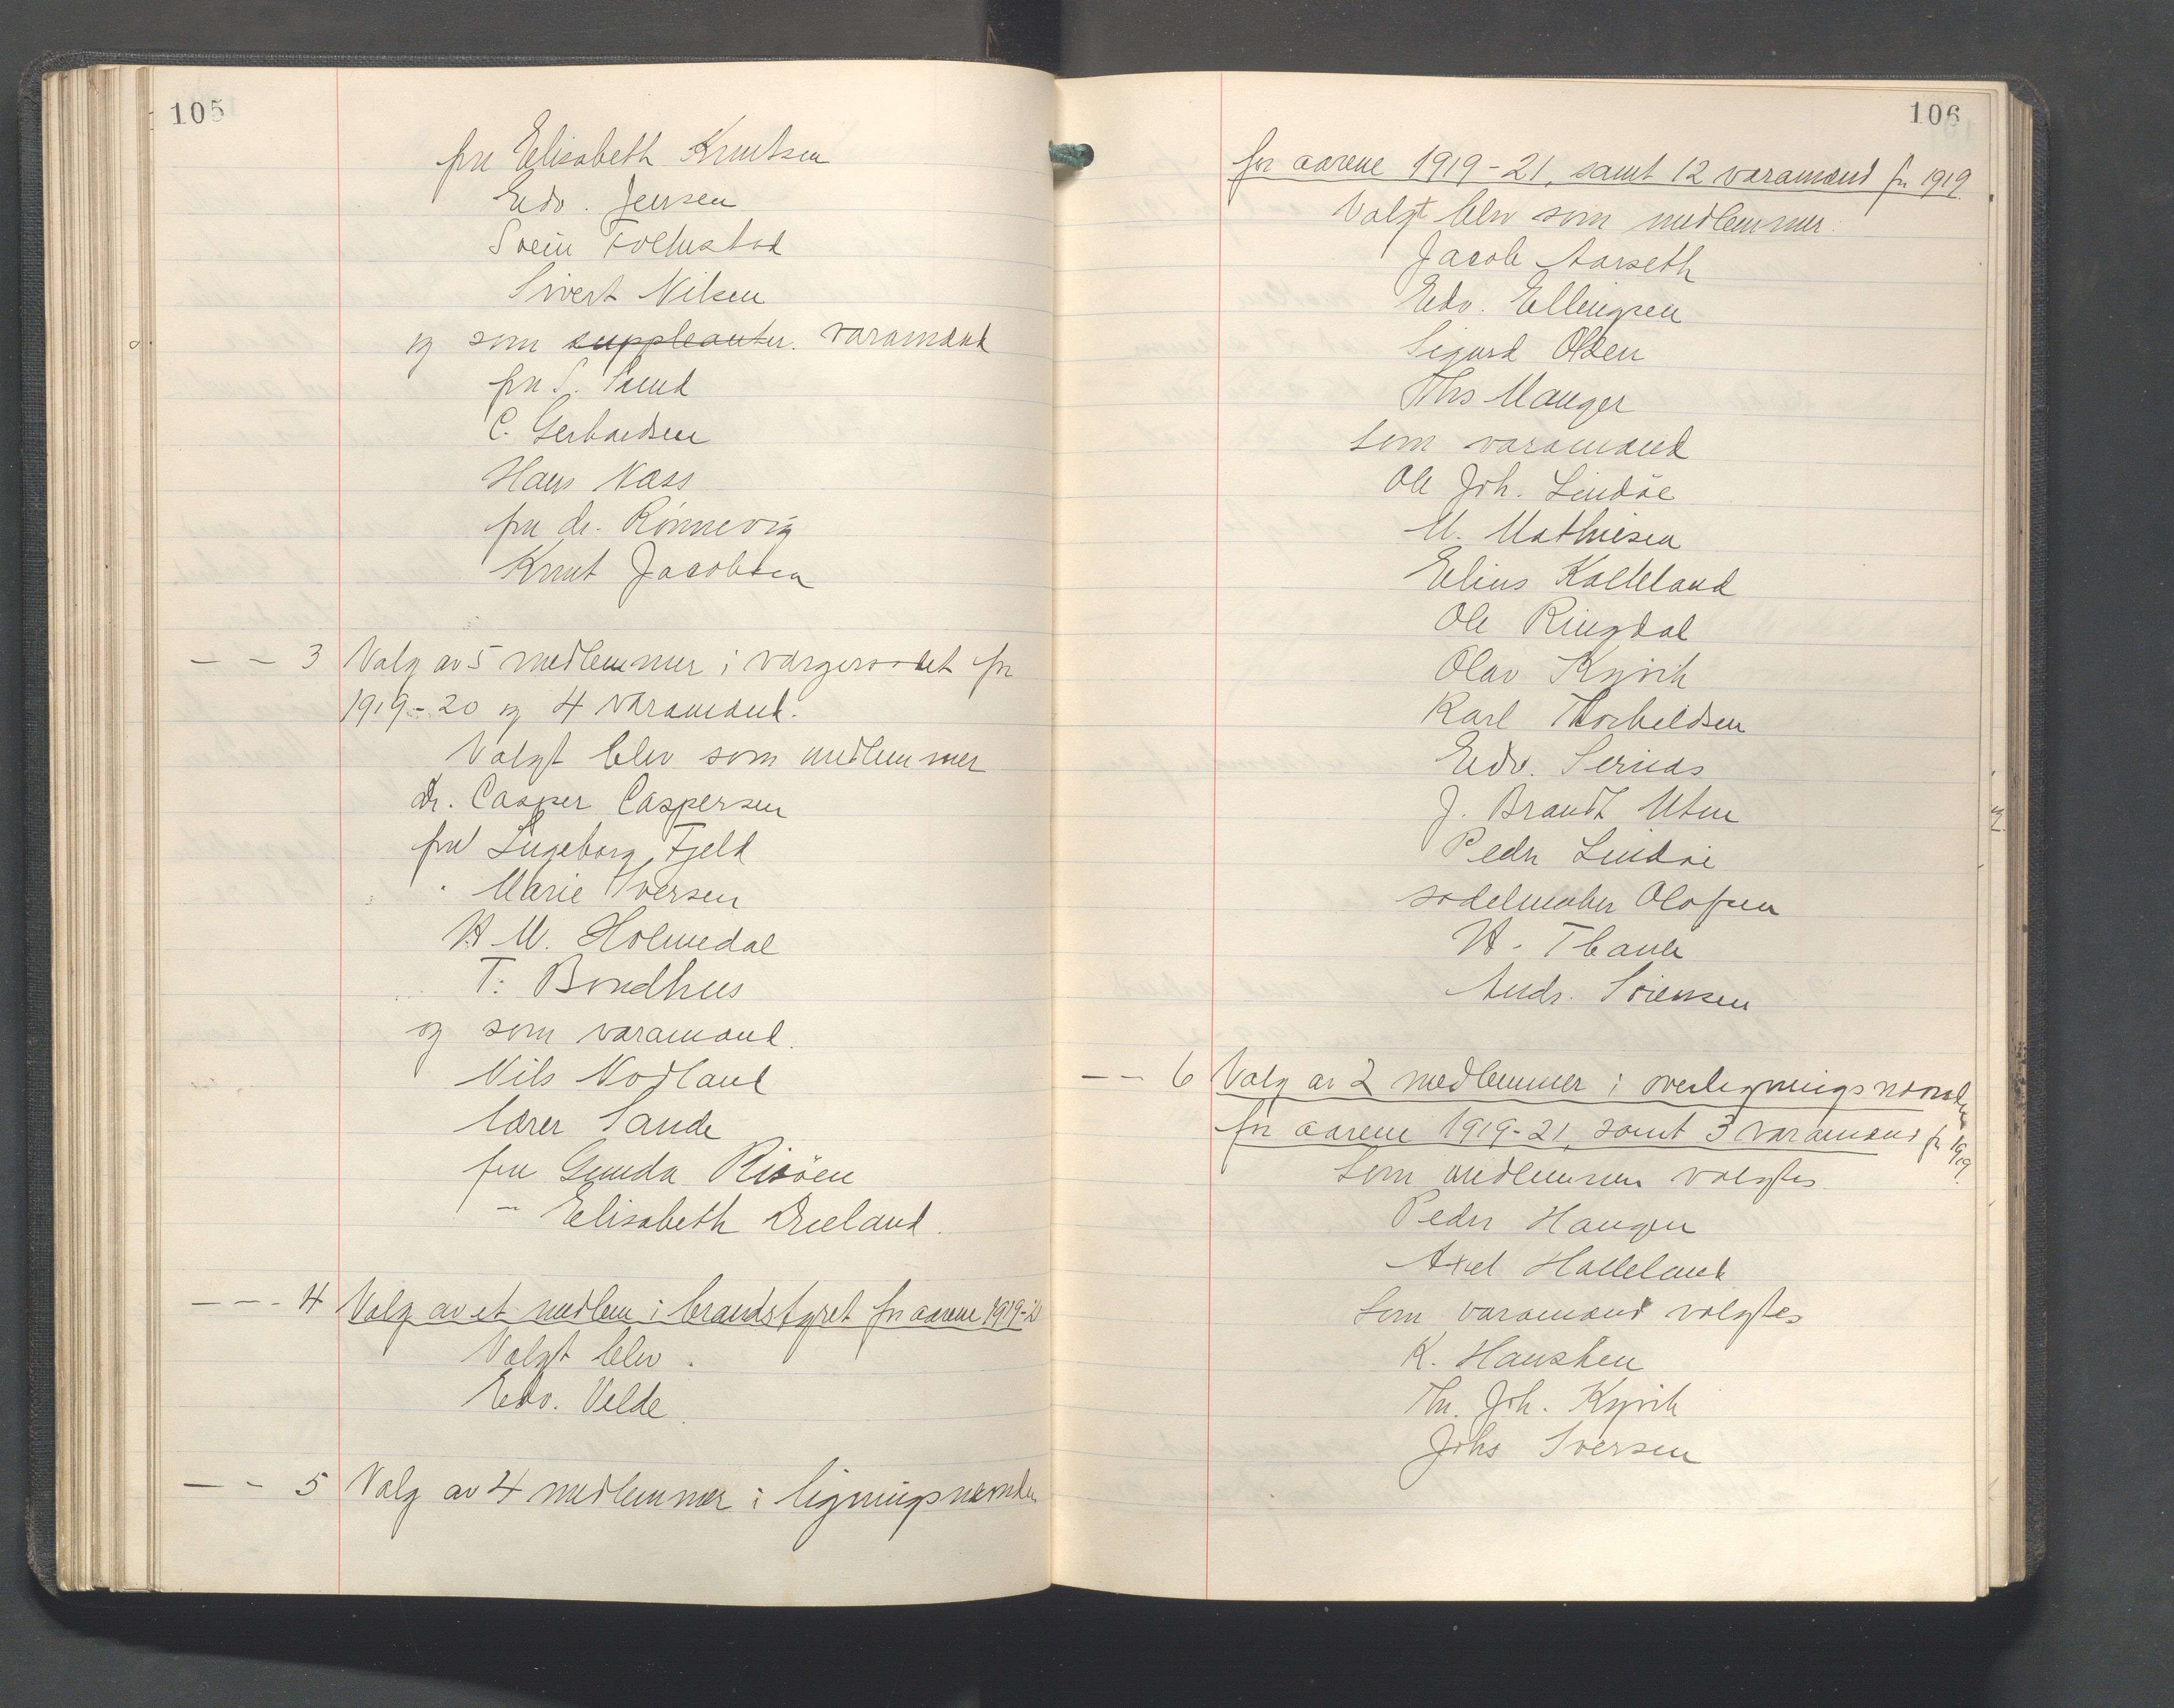 105
fru Elisabeth Knutsen
Edv. Jensen
Svein Folkestad
Sivert Nilsen
og som suppleanter. varamænd
fru S. Sund
C. Gerhardsen
Hans Næss
fru dr. Rönnevig
Knut Jacobsen
— – 3 Valg av 5 medlemmer i værgeraadet for
1919-20 og 4 varamænd.
Valgt blev som medlemmer
Dr. Casper Caspersen
fru Ingeborg Fjeld
" Marie Iversen
H. M. Holmedal
T. Bondhus
og som varamænd.
Nils Nodland
lærer Sande
fru Gunda Risöen
— Elisabeth
— – - 4 Valg av et medlem i brandstyret for aarene 1919-21
Valgt blev.
Edv. Velde.
— – 5 Valg av 4 medlemmer i ligningsnævnden
106
for aarene 1919-21, samt 12 varamænd for 1919.
Valgt blev som medlemmer:
Jacob Aarseth
Edv. Ellingsen
Sigurd Olsen
Ths Mauger
som varamænd
Ole Joh. Lindöe
M. Mathiesen
Elius Kalleland
Ole Ringdal
Olav Kyvik
Karl Thorkildsen
Edv.
J. Brandt Utne
Peder Lindöe
sadelmaker Olafsen
H.
Andr. Sörensen
— – 6 Valg av 2 medlemmer i overligningsnævnden
for aarene 1919-21, samt 3 varamænd for 1919.
Som medlemmer valgtes
Peder Haugen
Axel Halleland
Som varamænd valgtes
K. Hansken
Th. Joh. Kyvik
Johs Iversen